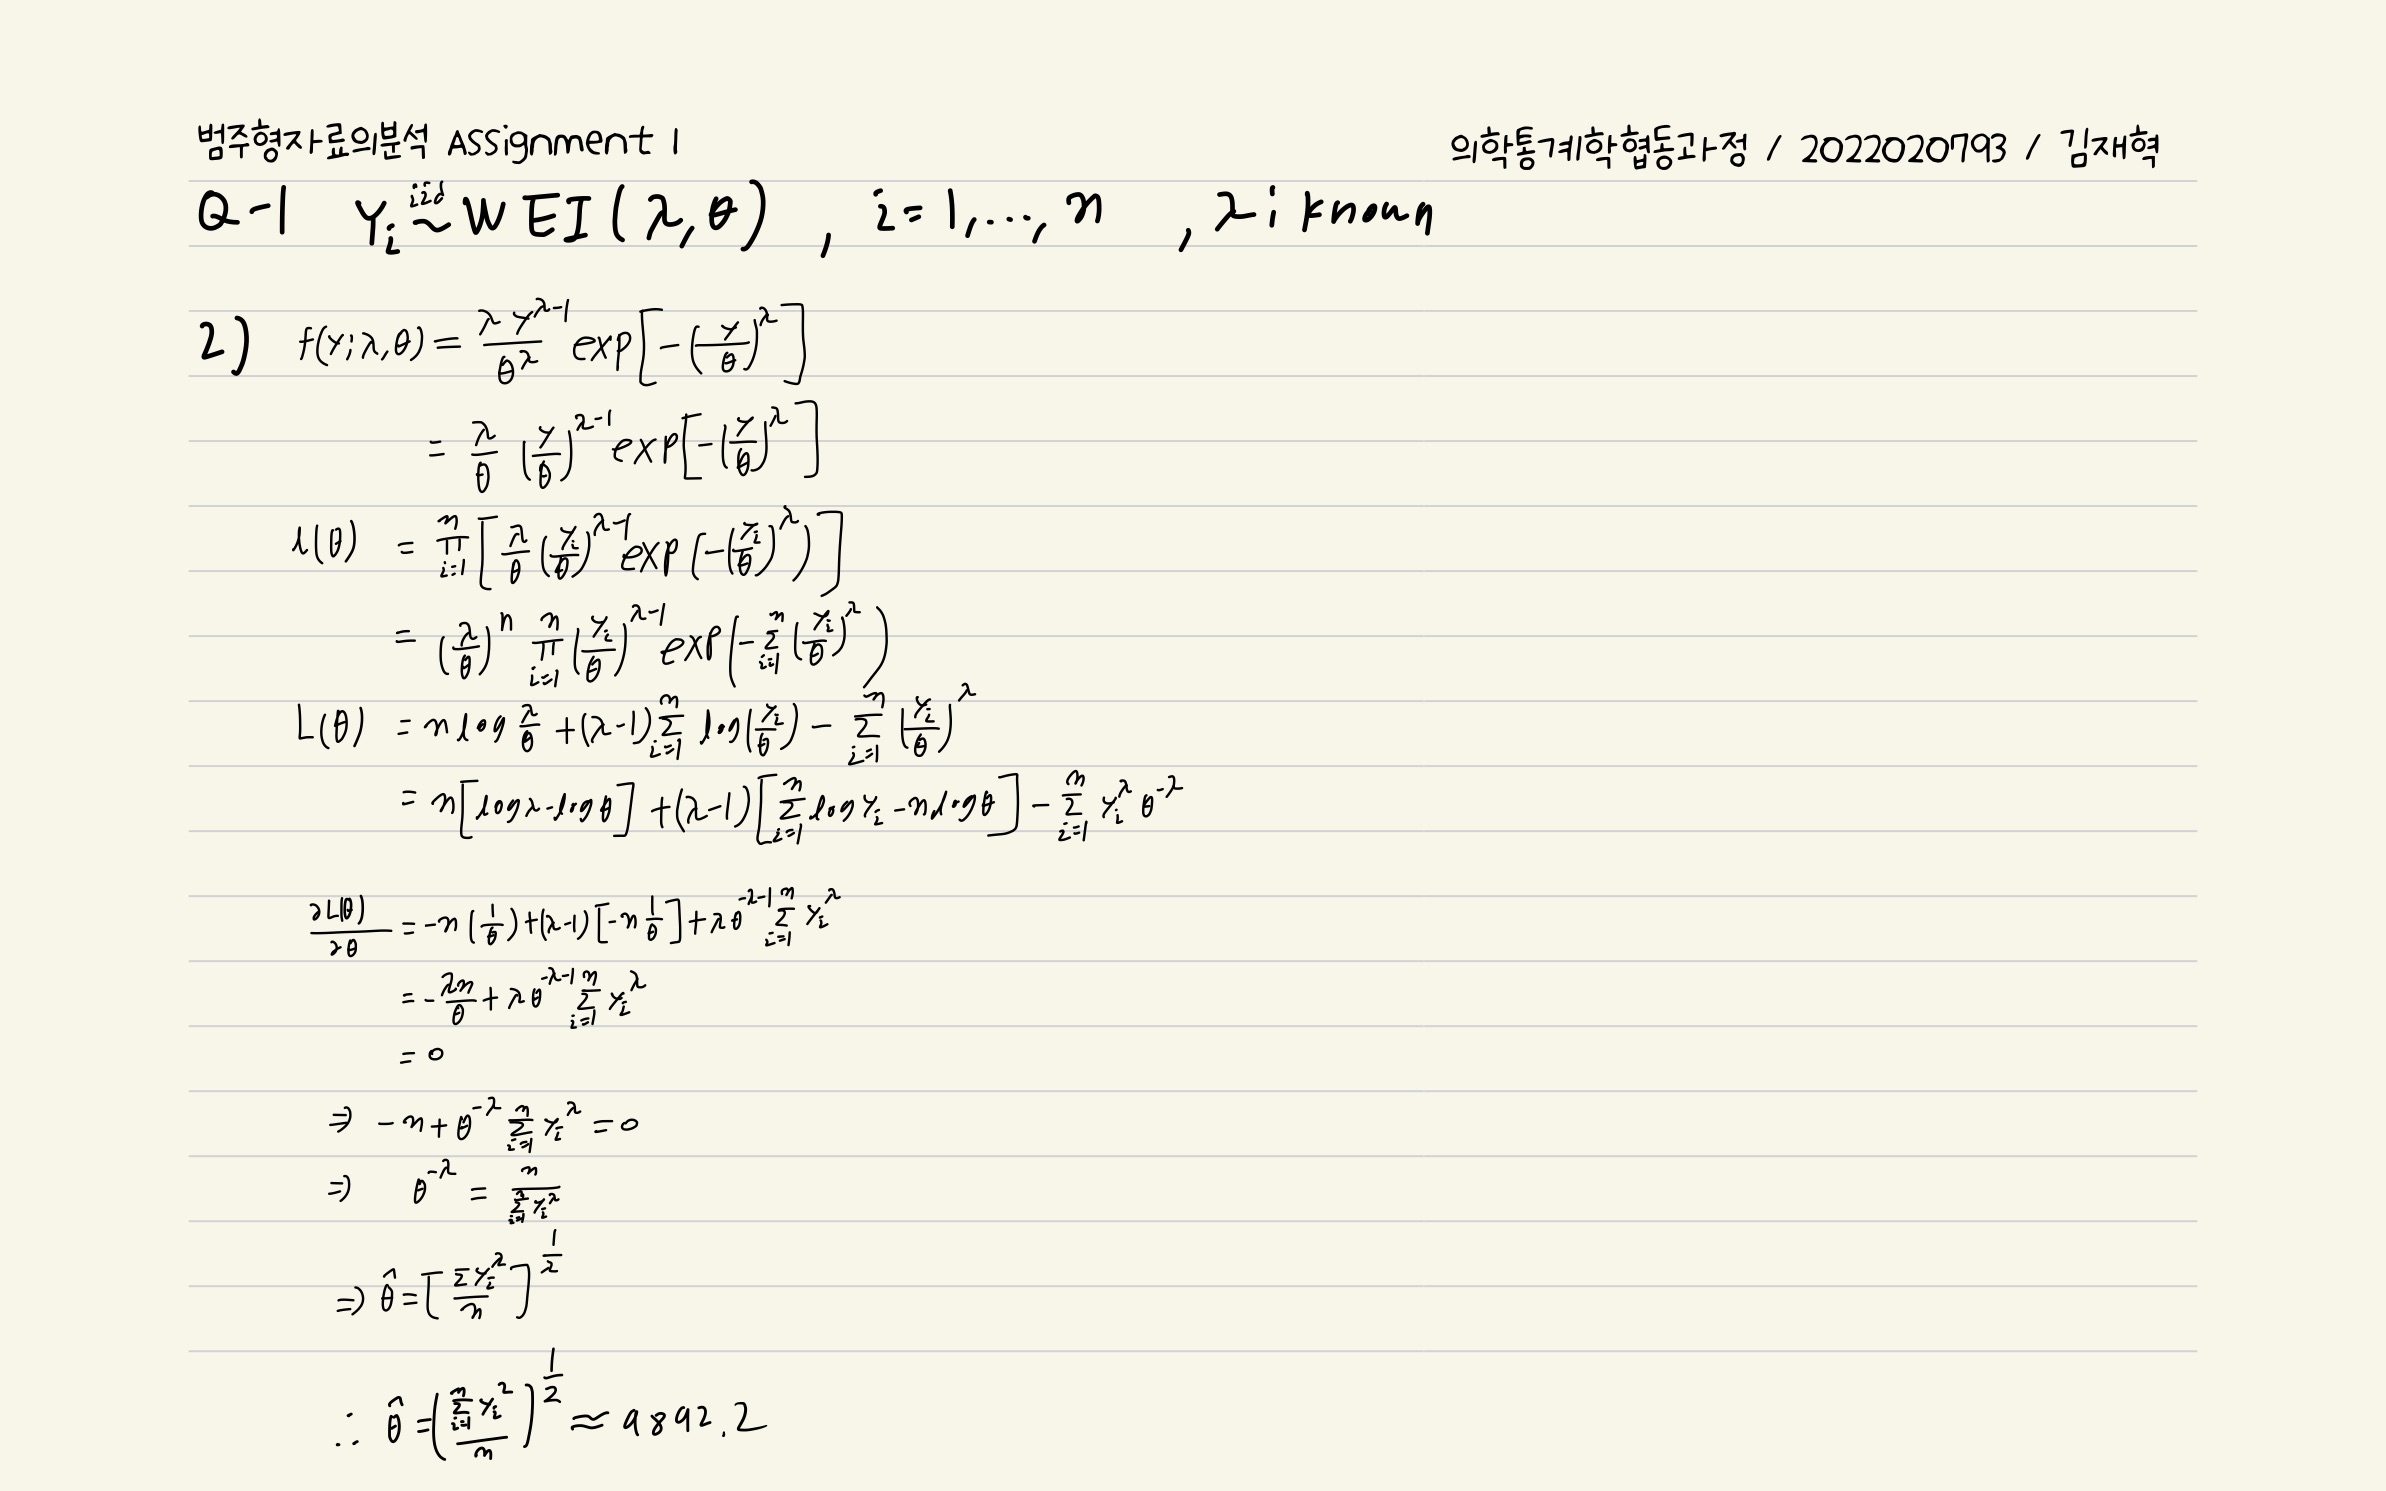 범주형자료의분석 Assignment 1
의학통계학협동과정 / 2022020793 / 김재혁
Q-1 Yᵢ ~ⁱⁱᵈ WEI(λ,θ) , i=1,...,n , λ; known
2) f(y;λ,θ) = λy^(λ-1)/θ^λ exp[-(y/θ)^λ]
= λ/θ (y/θ)^(λ-1) exp[-(y/θ)^λ]
l(θ) = Π_(i=1)^n [λ/θ (yᵢ/θ)^(λ-1) exp(-(yᵢ/θ)^λ)]
= (λ/θ)^n Π_(i=1)^n (yᵢ/θ)^(λ-1) exp(-Σ_(i=1)^n (yᵢ/θ)^λ)
L(θ) = n log λ/θ + (λ-1)Σ_(i=1)^n log(yᵢ/θ) - Σ_(i=1)^n (yᵢ/θ)^λ
= n[logλ-logθ] + (λ-1)[Σ_(i=1)^n log yᵢ - n log θ] - Σ_(i=1)^n yᵢ^λ θ^(-λ)
∂L(θ)/∂θ = -n(1/θ)+(λ-1)[-n 1/θ]+λθ^(-λ-1) Σ_(i=1)^n yᵢ^λ
= -λn/θ + λθ^(-λ-1) Σ_(i=1)^n yᵢ^λ
= 0
⇒ -n+θ^(-λ) Σ_(i=1)^n yᵢ^λ = 0
⇒ θ^(-λ) = n/(Σ_(i=1)^n yᵢ^λ)
⇒ θ̂ = [Σyᵢ^λ/n]^(1/λ)
∴ θ̂ = (Σ_(i=1)^n yᵢ^2/n)^(1/2) ≈ 9892.2